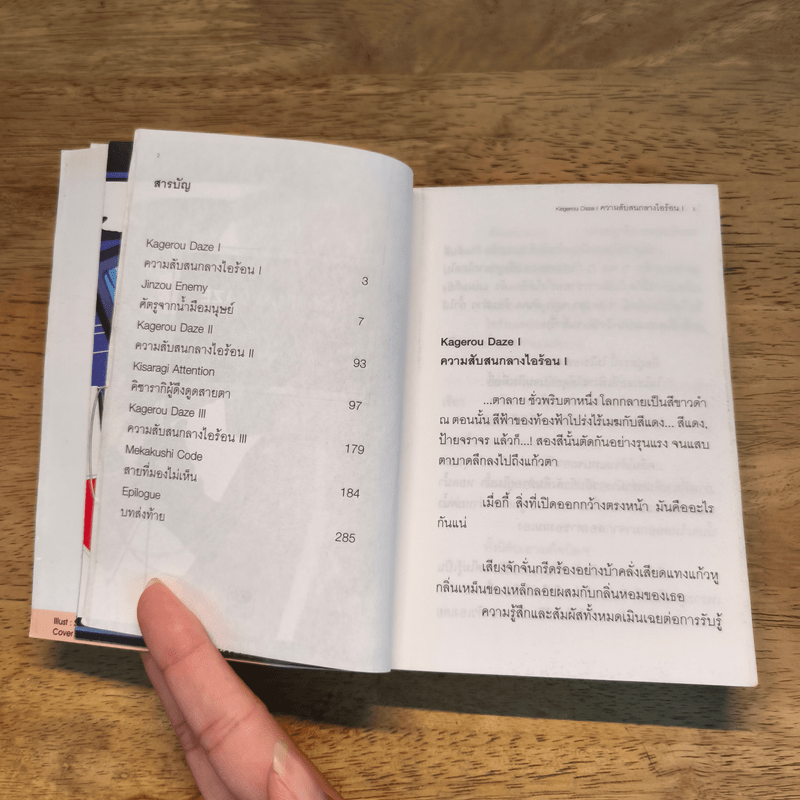 2
สารบัญ
Kagerou Daze I
ความสับสนกลางไอร้อน I
3
Jinzou Enemy
ศัตรูจากน้ำมือมนุษย์
7
Kagerou Daze II
ความสับสนกลางไอร้อน II
93
Kisaragi Attention
คิซารากิผู้ดึงดูดสายตา
97
Kagerou Daze III
ความสับสนกลางไอร้อน III
179
Mekakushi Code
สายที่มองไม่เห็น
184
Epilogue
บทส่งท้าย
285
Illust :
Cover
Kagerou Daze I ความสับสนกลางไอร้อน I
Kagerou Daze I
ความสับสนกลางไอร้อน I
...ตาลาย ชั่วพริบตาหนึ่ง โลกกลายเป็นสีขาวดำ
ณ ตอนนั้น สีฟ้าของท้องฟ้าโปร่งไร้เมฆกับสีแดง... สีแดง.
ป้ายจราจร แล้วก็...! สองสีนั้นตัดกันอย่างรุนแรง จนแสบ
ตาบาดลึกลงไปถึงแก้วตา
เมื่อกี้ สิ่งที่เปิดออกกว้างตรงหน้า มันคืออะไร
กันแน่
เสียงจักจั่นกรีดร้องอย่างบ้าคลั่งเสียดแทงแก้วหู
กลิ่นเหม็นของเหล็กลอยผสมกับกลิ่นหอมของเธอ
ความรู้สึกและสัมผัสทั้งหมดเมินเฉยต่อการรับรู้